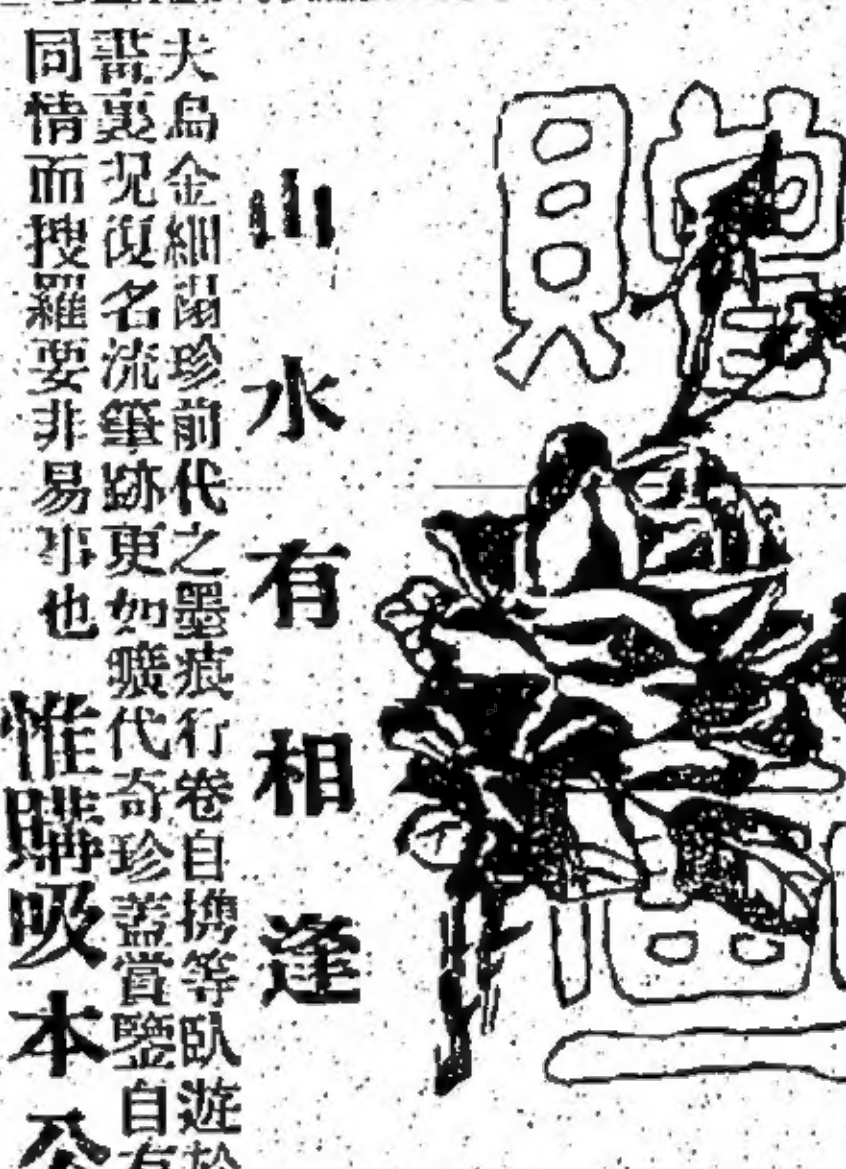 贈
山水有相逢
夫烏金細搨珍前代之墨痕行卷自携等臥遊於
畫裏况復名流筆跡更如曠代奇珍蓋賞鑒自有
同情而搜羅要非易事也 惟購吸本公